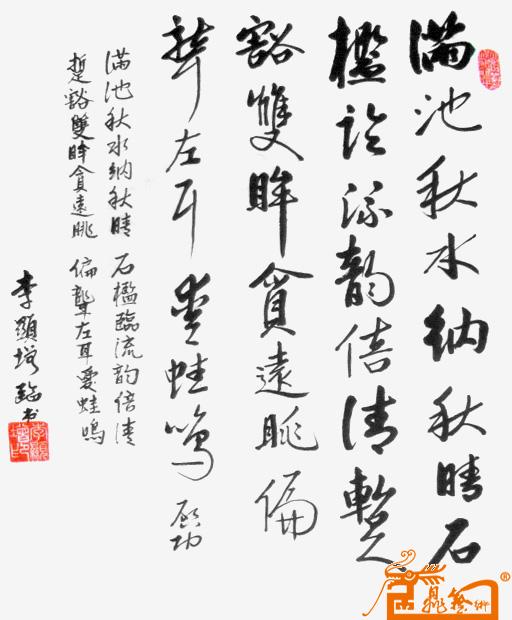 滿池秋水納秋晴石
檻臨流韻倍清蹔
豁雙眸貪遠眺偏
聾左耳愛蛙鳴 啟功
滿池秋水納秋晴 石檻臨流韵倍清
蹔豁雙眸貪遠眺 偏聾左耳愛蛙鳴
李顯增臨书
李顯增印